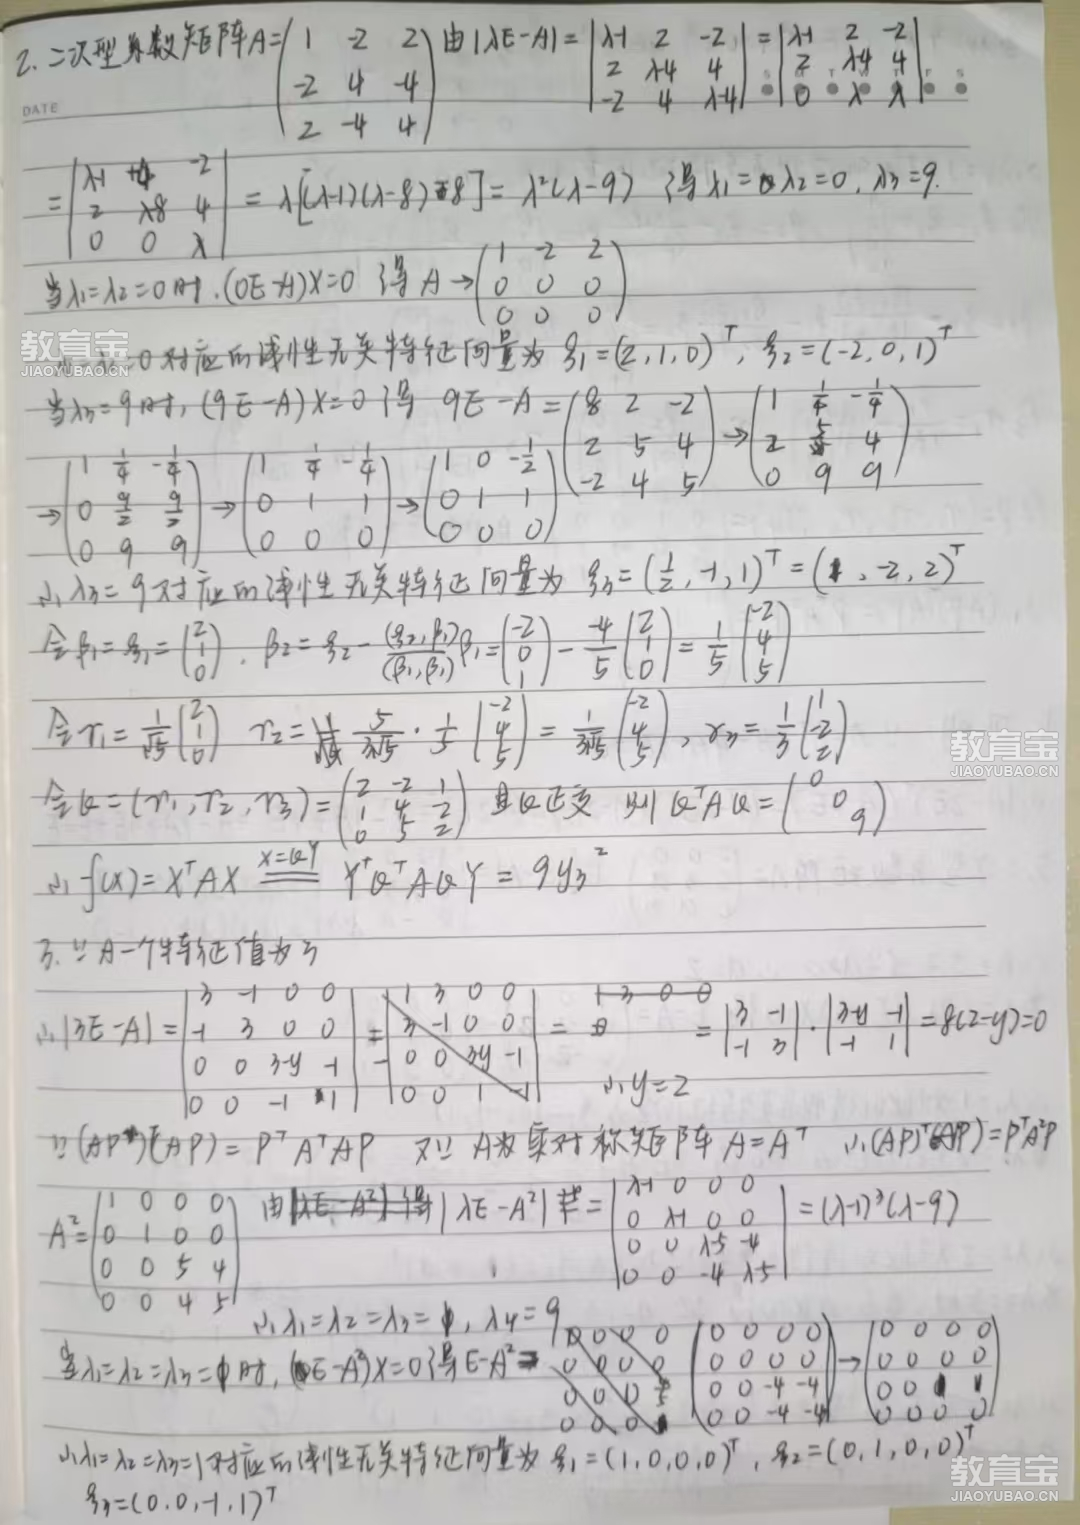 2. 二次型系数矩阵A=(1 -2 2
-2 4 -4
2 -4 4) 由|λE-A|=|λ-1 2 -2
2 λ-4 4
-2 4 λ-4|=|λ-1 2 -2
2 λ-4 4
0 λ λ|
DATE
=|λ-1 4 -2
2 λ-8 4
0 0 λ|=λ[(λ-1)(λ-8)-8]=λ²(λ-9) 得λ1=λ2=0, λ3=9.
当λ1=λ2=0时,(0E-A)X=0 得 A→(1 -2 2
0 0 0
0 0 0)
教育宝
JIAOYUBAO.CN
=0对应的线性无关特征向量为 ξ1=(2,1,0)ᵀ, ξ2=(-2,0,1)ᵀ
当λ3=9时, (9E-A)X=0 得 9E-A=(8 2 -2
2 5 4
-2 4 5)→(1 1/4 -1/4
2 5 4
0 9 9)
→(1 1/4 -1/4
0 9/2 9/2
0 9 9)→(1 1/4 -1/4
0 1 1
0 0 0)→(1 0 -1/2
0 1 1
0 0 0)
∴λ3=9对应的线性无关特征向量为 ξ3=(1/2,-1,1)ᵀ=(1,-2,2)ᵀ
令β1=ξ1=(2
1
0), β2=ξ2-(ξ2,β1)/(β1,β1)β1=(-2
0
1)- -4/5(2
1
0)=1/5(-2
4
5)
令r1=1/√5(2
1
0) r2=5/3√5·1/5(-2
4
5)=1/3√5(-2
4
5), r3=1/3(1
-2
2)
教育宝
JIAOYUBAO.CN
令Q=(r1,r2,r3)=(2 -2 1
1 4 -2
0 5 2) 且Q正交 则QᵀAQ=(0
0
9)
∴f(x)=XᵀAX X=QY YᵀQᵀAQY=9y3²
3. ∵A一个特征值为3
∴|3E-A|=|3 -1 0 0
-1 3 0 0
0 0 3-y -1
0 0 -1 1|=|3 -1
-1 3|·|3-y -1
-1 1|=8(2-y)=0
∴y=2
∵(AP)ᵀ(AP)=PᵀAᵀAP 又∵A为实对称矩阵 A=Aᵀ ∴(AP)ᵀ(AP)=PᵀA²P
A²=(1 0 0 0
0 1 0 0
0 0 5 4
0 0 4 5) 由|λE-A²|=|λ-1 0 0 0
0 λ-1 0 0
0 0 λ-5 -4
0 0 -4 λ-5|=(λ-1)³(λ-9)
∴λ1=λ2=λ3=1, λ4=9
当λ1=λ2=λ3=1时, (E-A²)X=0得E-A²=(0 0 0 0
0 0 0 0
0 0 -4 -4
0 0 -4 -4)→(0 0 0 0
0 0 0 0
0 0 1 1
0 0 0 0)
∴λ1=λ2=λ3=1对应的线性无关特征向量为 ξ1=(1,0,0,0)ᵀ, ξ2=(0,1,0,0)ᵀ
ξ3=(0,0,-1,1)ᵀ
教育宝
JIAOYUBAO.CN